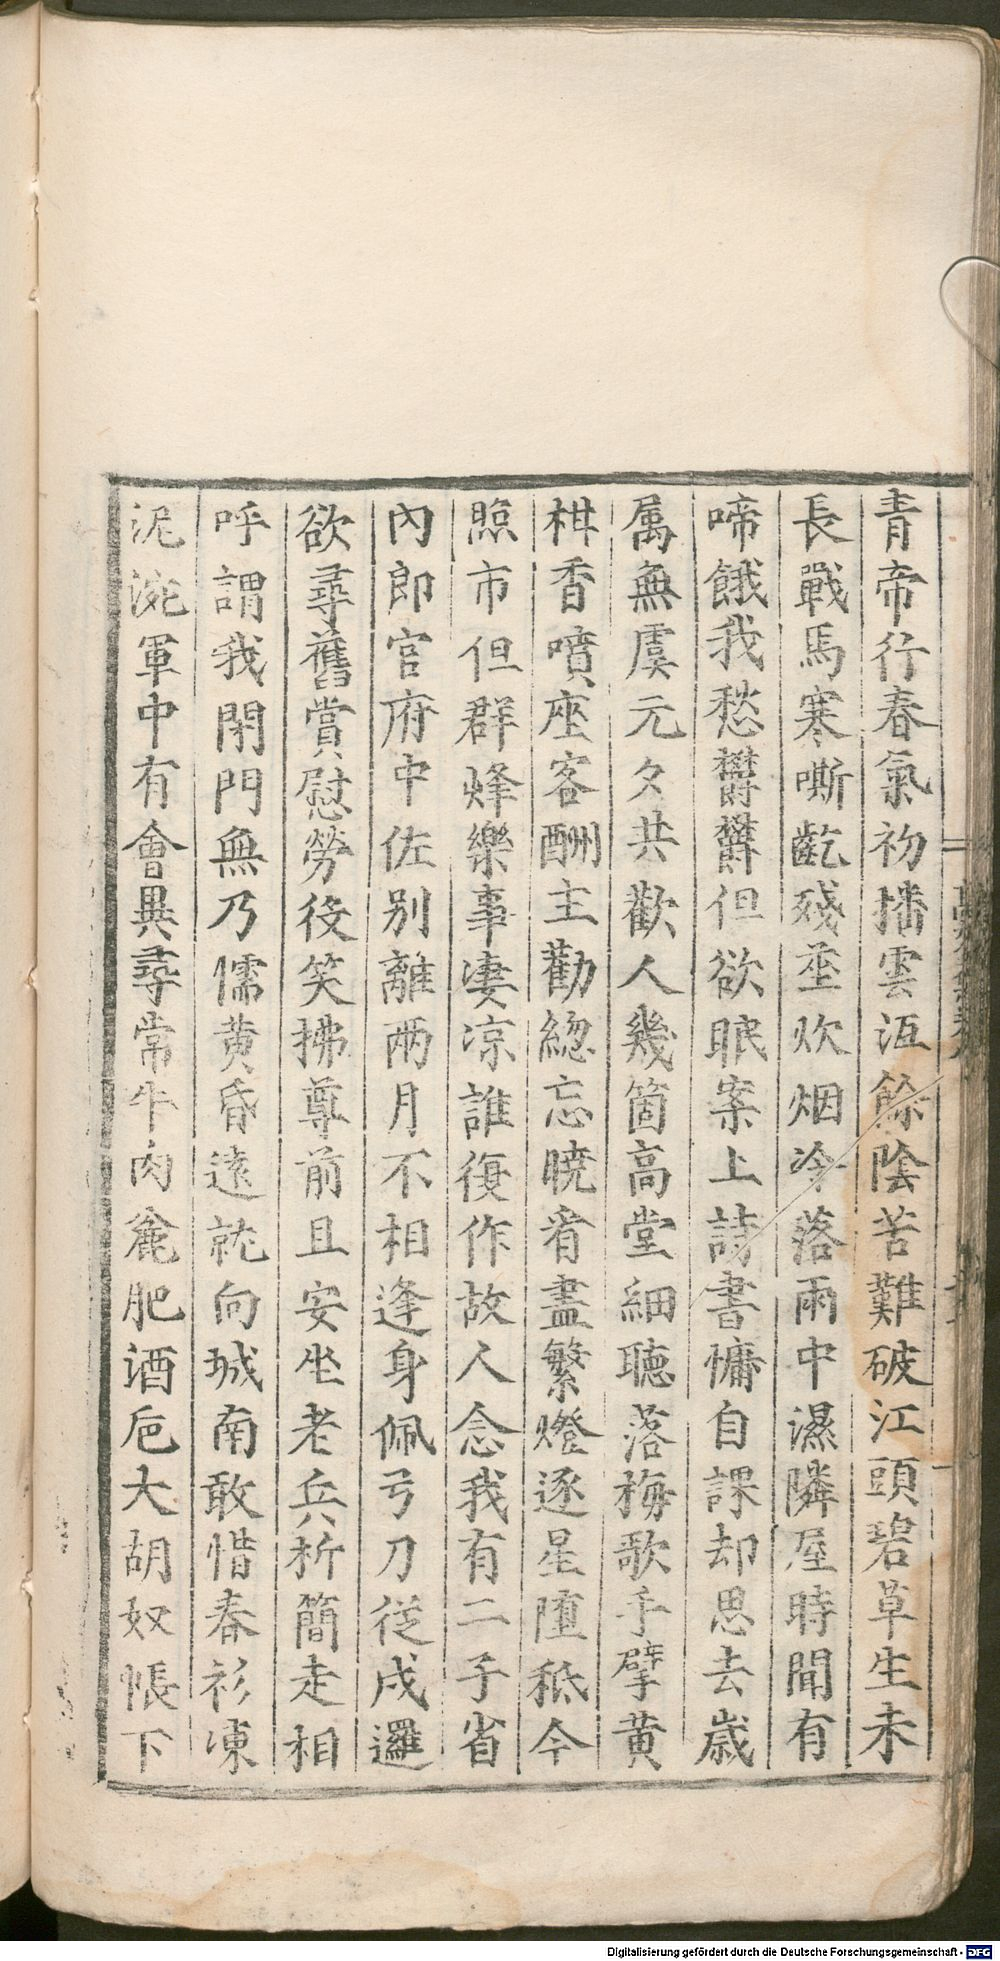 青帝行春氣初播雲沍餘陰苦難破江頭碧草生未
長戰馬寒嘶齕殘莝炊烟冷落雨中濕隣屋時聞有
啼餓我愁欝欝但欲眠案上詩書慵自課却思去歲
属無虞元夕共歡人幾箇高堂細聴落梅歌手擘黄
柑香噴座客酬主勸緫忘曉肴盡繁燈逐星墮秪今
照市但群烽樂事凄凉誰復作故人念我有二子省
內郎官府中佐别離两月不相逢身佩弓刀從戍邏
欲尋舊賞慰勞役笑拂尊前且安坐老兵折簡走相
呼謂我閉門無乃懦黄昏遠就向城南敢惜春衫凍
泥涴軍中有會異尋常牛肉麄肥酒巵大胡奴帳下
Digitalisierung gefördert durch die Deutsche Forschungsgemeinschaft - DFG